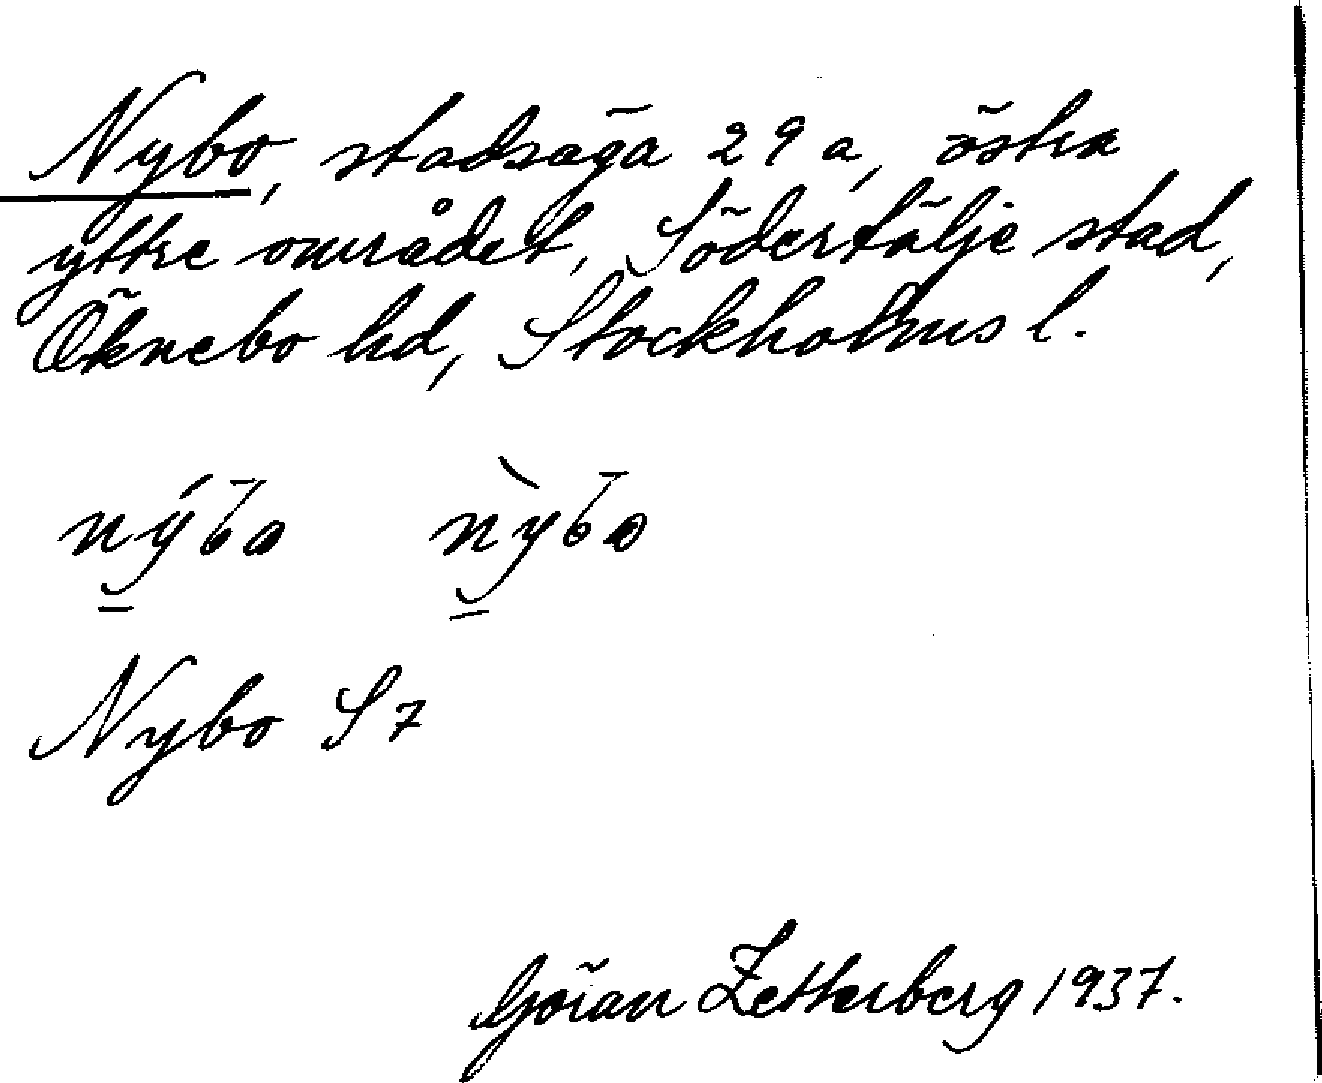 Nybo, stadsäga 29 a, östra
yttre området, Södertälje stad,
Öknebo hd, Stockholms l.
Nybo S 7
Göran Zetterberg 1937.